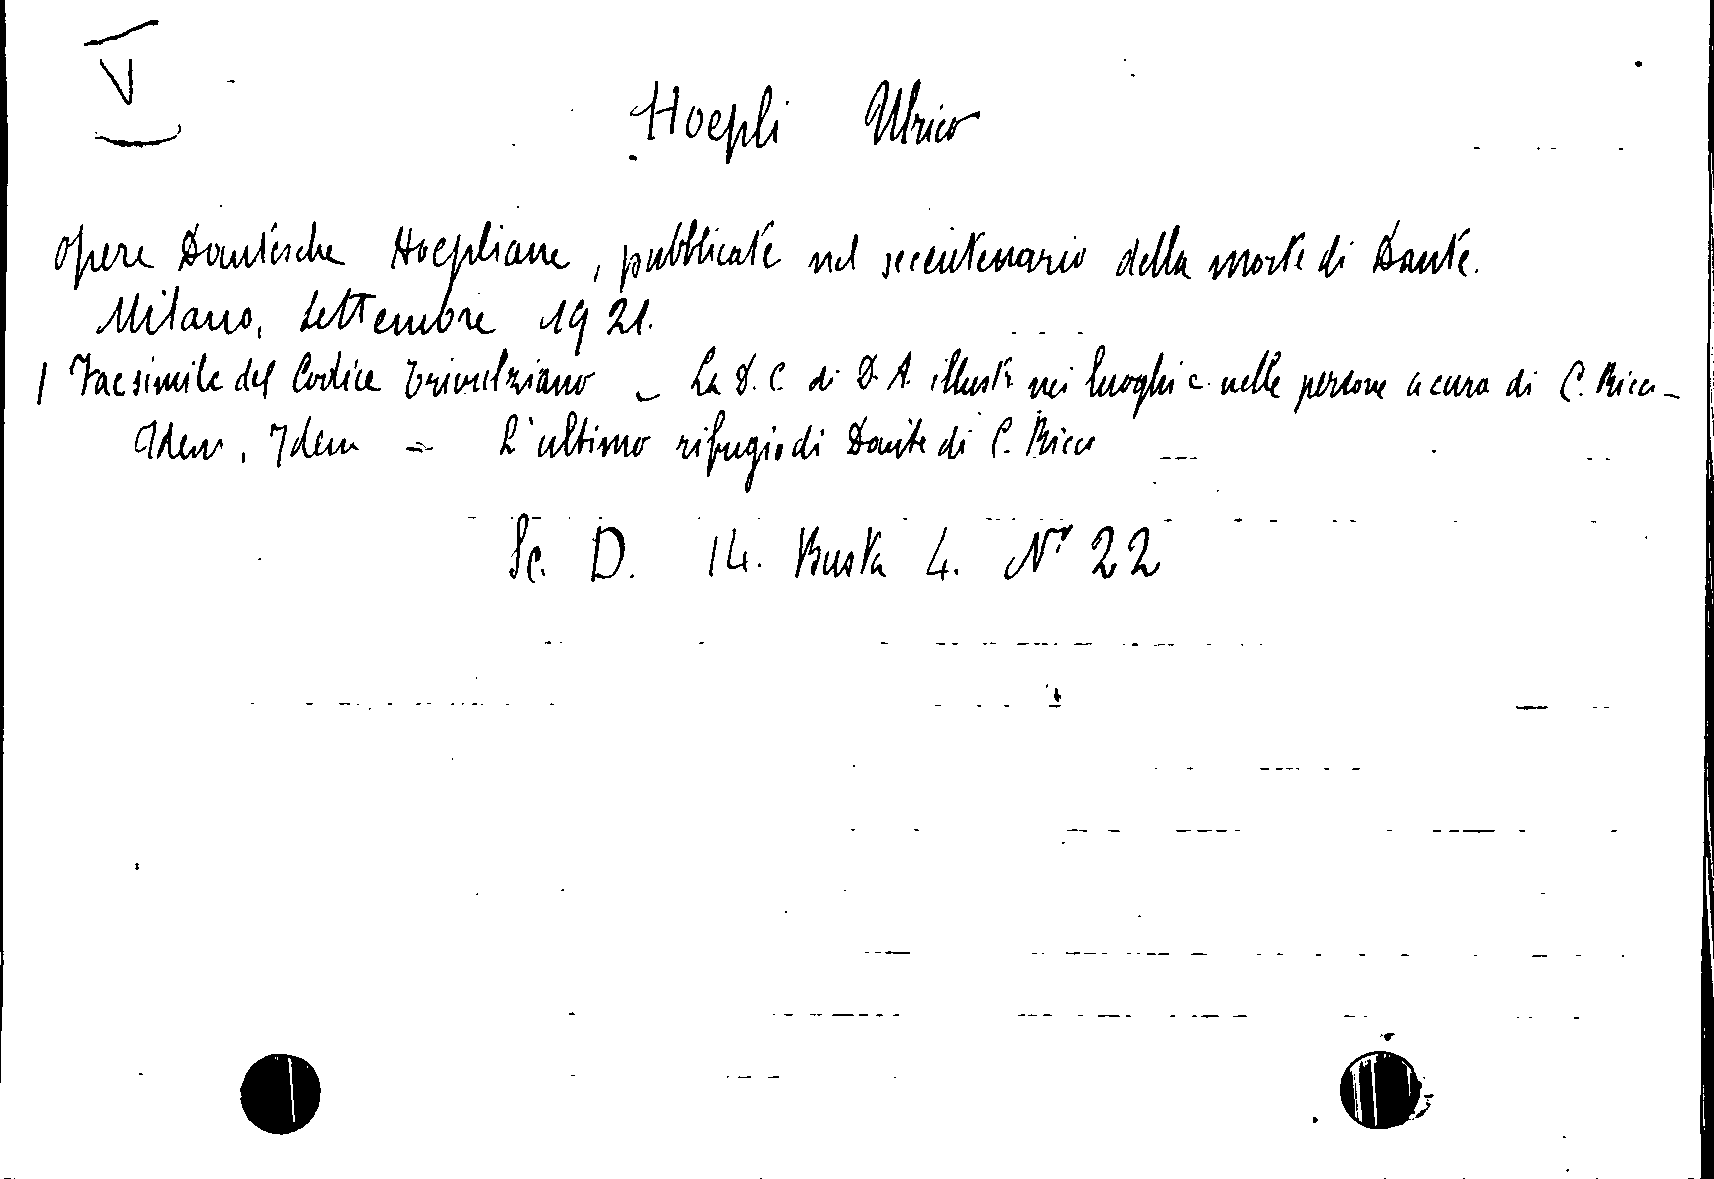 V
Hoepli Ulrico
Opere Dantesche Hoepliane, pubblicate nel secentenario della morte di Dante.
Milano, Settembre 1921.
/ Facsimile del Codice Trivulziano - La D. C. di D. A. illustr. nei luoghi e nelle persone a cura di C. Ricci -
Idem, Idem = L'ultimo rifugio di Dante di C. Ricci
Sc. D. 14. Busta 4. Nr 22